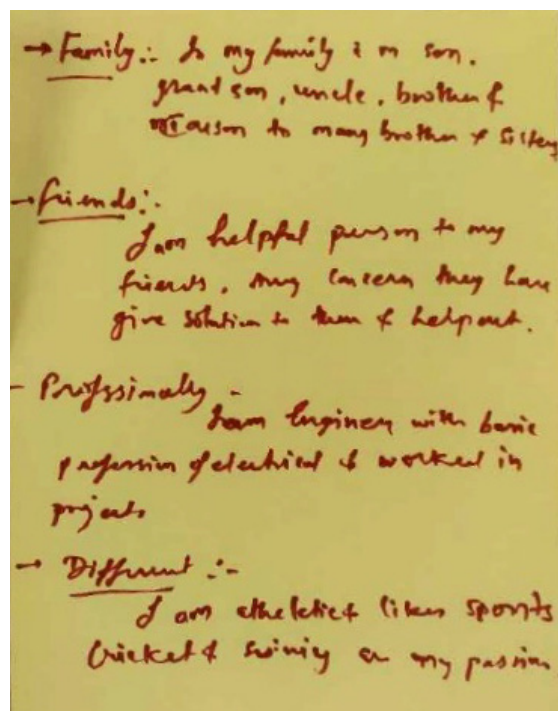 → Family :- In my family i m son,
grand son, uncle, brother &
cousin to many brother & sister
→ friends :-
I am helpful person to my
friends, any concern they have
give solution to them & helpout.
- Professionally -
I am Engineer with basic
profession of electrical & worked in
projects
→ Different :-
I am atheletic & likes sports
Cricket & my passion